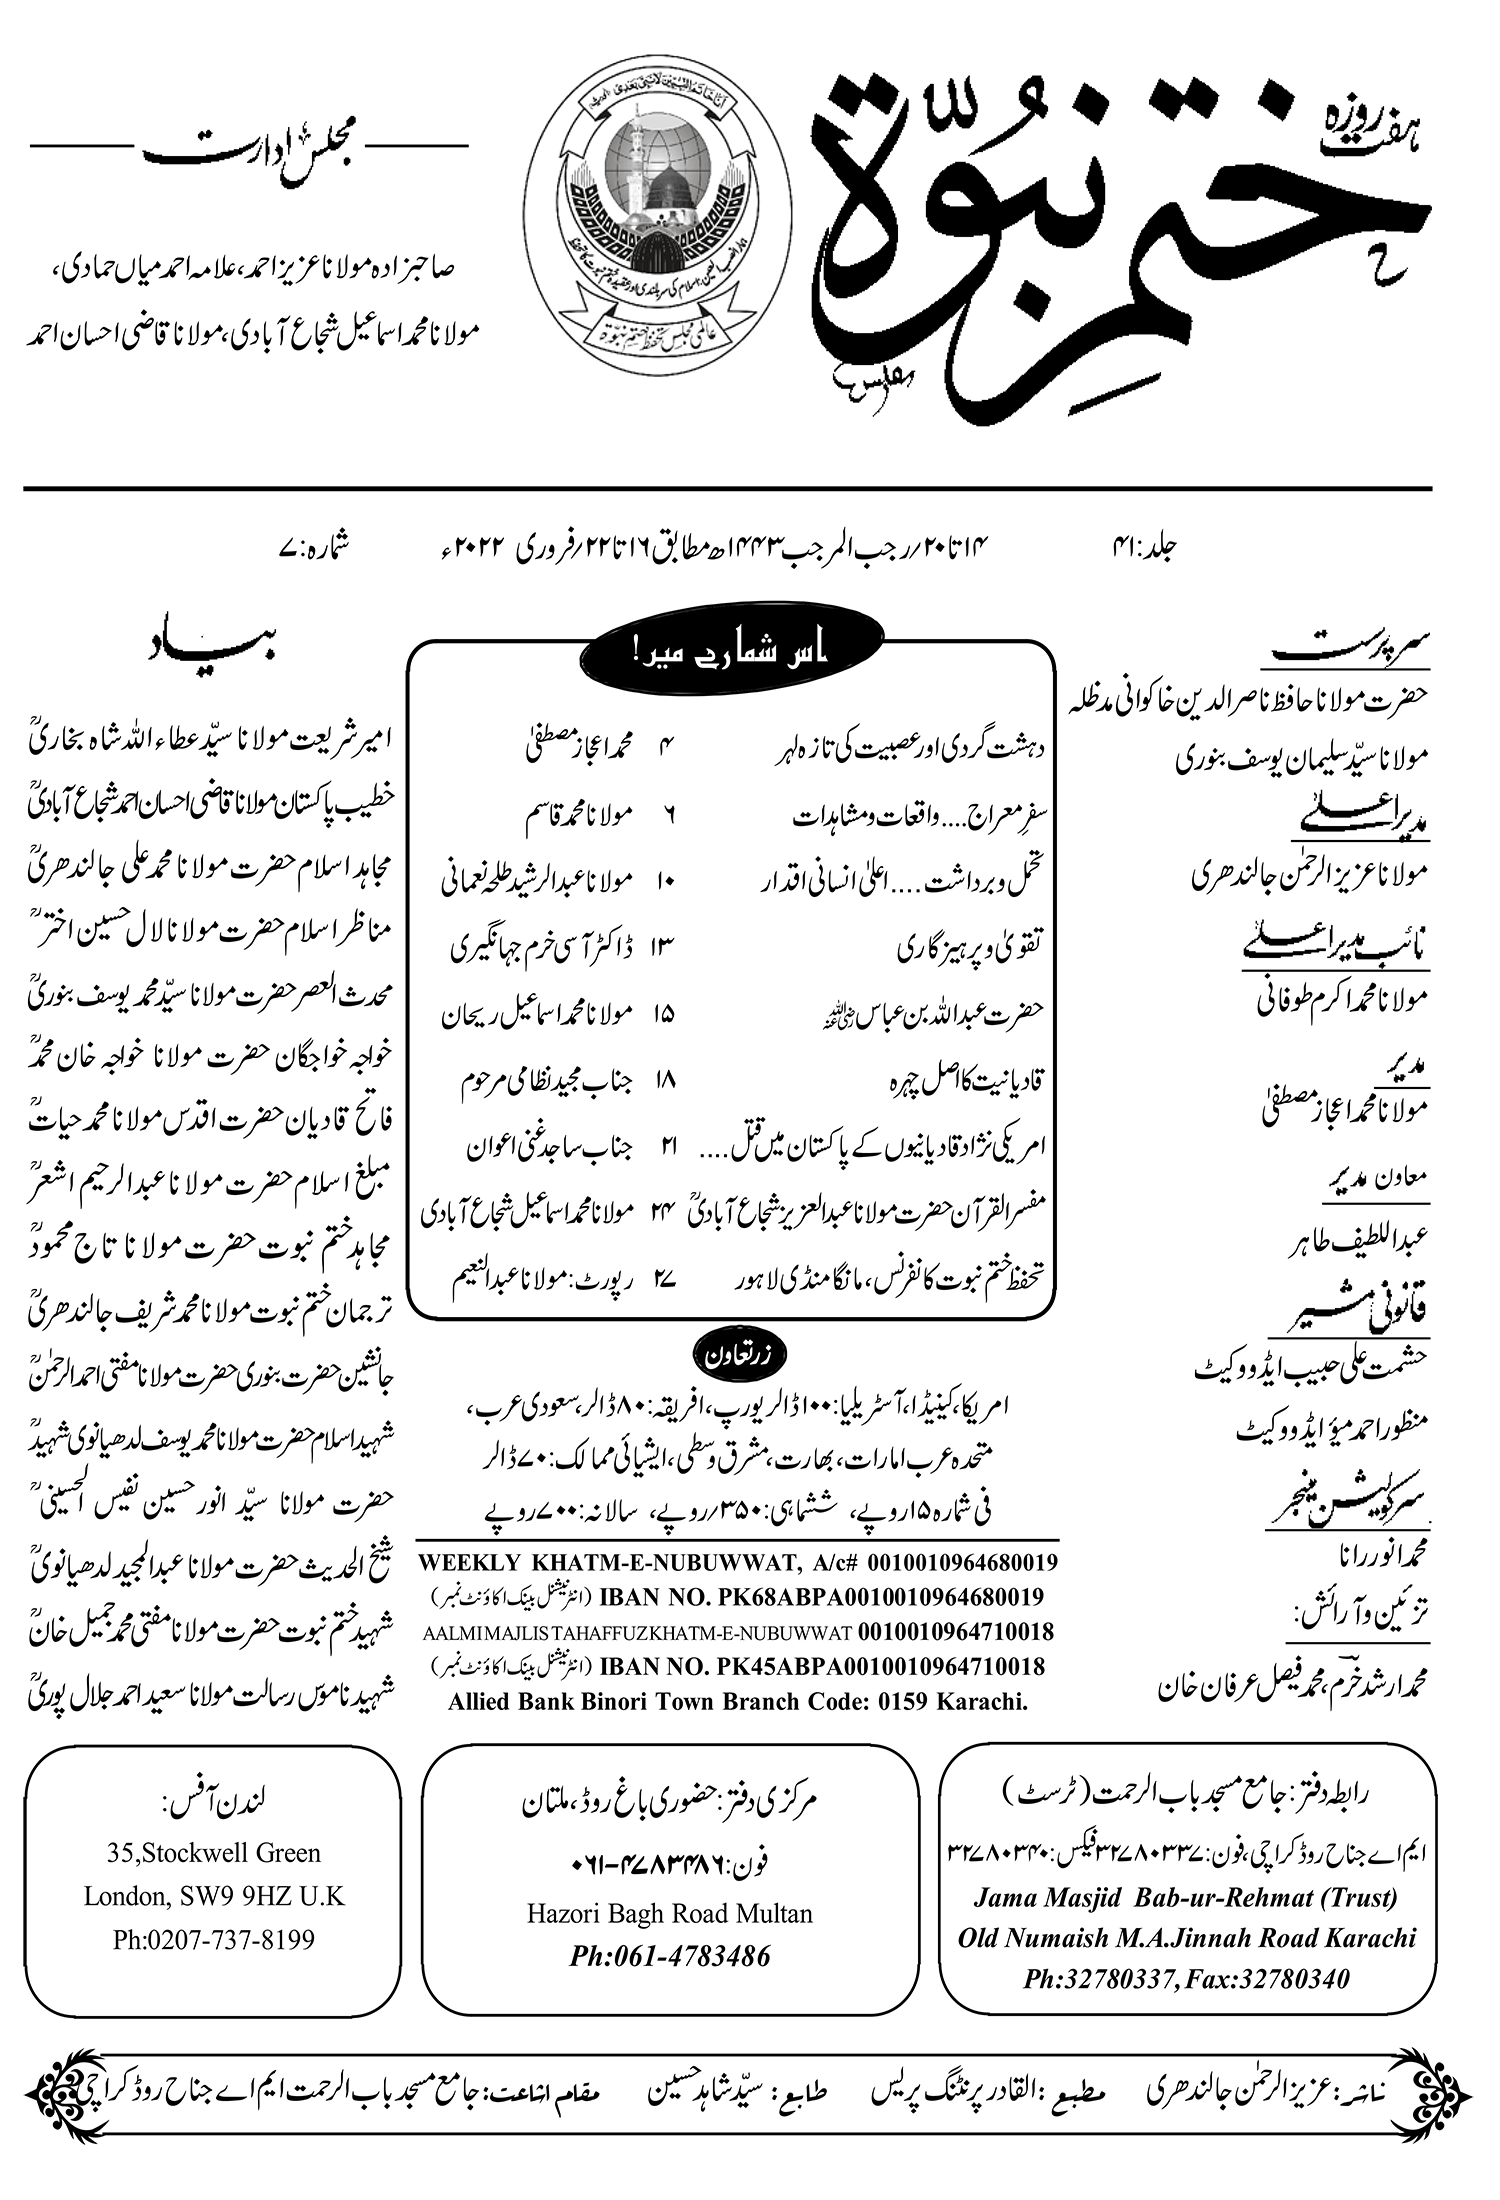 ہفت روزہ
ختم نبوّۃ
مجلس ادارت
صاحبزادہ مولانا عزیز احمد، علامہ احمد میاں حمادی،
مولانا محمد اسماعیل شجاع آبادی، مولانا قاضی احسان احمد
عالمی مجلس تحفظ ختم نبوۃ
جلد: ۴۱
۱۴ تا ۲۰/رجب المرجب ۱۴۴۳ھ مطابق ۱۶ تا ۲۲/فروری ۲۰۲۲ء
شمارہ: ۷
سرپرست
حضرت مولانا حافظ ناصرالدین خاکوانی مدظلہ
مولانا سیّد سلیمان یوسف بنوری
مدیر اعلیٰ
مولانا عزیز الرحمٰن جالندھری
نائب مدیر اعلیٰ
مولانا محمد اکرم طوفانی
مدیر
مولانا محمد اعجاز مصطفیٰ
معاون مدیر
عبداللطیف طاہر
قانونی مشیر
حشمت علی حبیب ایڈووکیٹ
منظور احمد میؤ ایڈووکیٹ
سرکولیشن منیجر
محمد انور رانا
تزئین و آرائش:
محمد ارشد خرم، محمد فیصل عرفان خان
اس شمارے میں!
دہشت گردی اور عصبیت کی تازہ لہر ۴ محمد اعجاز مصطفیٰ
سفرِ معراج.... واقعات و مشاہدات ۶ مولانا محمد قاسم
تحمل و برداشت.... اعلیٰ انسانی اقدار ۱۰ مولانا عبدالرشید طلحہ نعمانی
تقویٰ و پرہیز گاری ۱۳ ڈاکٹر آسی خرم جہانگیری
حضرت عبداللہ بن عباس رضی اللہ عنہ ۱۵ مولانا محمد اسماعیل ریحان
قادیانیت کا اصل چہرہ ۱۸ جناب مجید نظامی مرحوم
امریکی نژاد قادیانیوں کے پاکستان میں قتل.... ۲۱ جناب ساجد غنی اعوان
مفسر القرآن حضرت مولانا عبدالعزیز شجاع آبادیؒ ۲۴ مولانا محمد اسماعیل شجاع آبادی
تحفظ ختم نبوت کانفرنس، مانگا منڈی لاہور ۲۷ رپورٹ: مولانا عبدالنعیم
زرتعاون
امریکا، کینیڈا، آسٹریلیا: ۱۰۰ڈالر یورپ، افریقہ: ۸۰ڈالر، سعودی عرب،
متحدہ عرب امارات، بھارت، مشرق وسطی، ایشیائی ممالک: ۷۰ڈالر
فی شمارہ ۱۵روپے، ششماہی: ۳۵۰/روپے، سالانہ: ۷۰۰روپے
WEEKLY KHATM-E-NUBUWWAT, A/c# 0010010964680019
IBAN NO. PK68ABPA0010010964680019 (انٹرنیشنل بینک اکاؤنٹ نمبر)
AALMIMAJLISTAHAFFUZKHATM-E-NUBUWWAT 0010010964710018
IBAN NO. PK45ABPA0010010964710018 (انٹرنیشنل بینک اکاؤنٹ نمبر)
Allied Bank Binori Town Branch Code: 0159 Karachi.
بیاد
امیر شریعت مولانا سیّد عطاء اللہ شاہ بخاریؒ
خطیب پاکستان مولانا قاضی احسان احمد شجاع آبادیؒ
مجاہد اسلام حضرت مولانا محمد علی جالندھریؒ
مناظر اسلام حضرت مولانا لال حسین اخترؒ
محدث العصر حضرت مولانا سیّد محمد یوسف بنوریؒ
خواجہ خواجگان حضرت مولانا خواجہ خان محمدؒ
فاتح قادیان حضرت اقدس مولانا محمد حیاتؒ
مبلغ اسلام حضرت مولانا عبدالرحیم اشعرؒ
مجاہد ختم نبوت حضرت مولانا تاج محمودؒ
ترجمان ختم نبوت مولانا محمد شریف جالندھریؒ
جانشین حضرت بنوری حضرت مولانا مفتی احمدالرحمٰنؒ
شہید اسلام حضرت مولانا محمد یوسف لدھیانوی شہیدؒ
حضرت مولانا سیّد انور حسین نفیس الحسینیؒ
شیخ الحدیث حضرت مولانا عبدالمجید لدھیانویؒ
شہید ختم نبوت حضرت مولانا مفتی محمد جمیل خانؒ
شہید ناموس رسالت مولانا سعید احمد جلال پوریؒ
رابطہ دفتر: جامع مسجد باب الرحمت (ٹرسٹ)
ایم اے جناح روڈ کراچی، فون: ۳۲۷۸۰۳۳۷ فیکس: ۳۲۷۸۰۳۴۰
Jama Masjid Bab-ur-Rehmat (Trust)
Old Numaish M.A.Jinnah Road Karachi
Ph:32780337, Fax:32780340
مرکزی دفتر: حضوری باغ روڈ، ملتان
فون: ۰۶۱-۴۷۸۳۴۸۶
Hazori Bagh Road Multan
Ph:061-4783486
لندن آفس:
35,Stockwell Green
London, SW9 9HZ U.K
Ph:0207-737-8199
ناشر: عزیز الرحمٰن جالندھری مطبع: القادر پرنٹنگ پریس طابع: سیّد شاہد حسین مقام اشاعت: جامع مسجد باب الرحمت ایم اے جناح روڈ کراچی